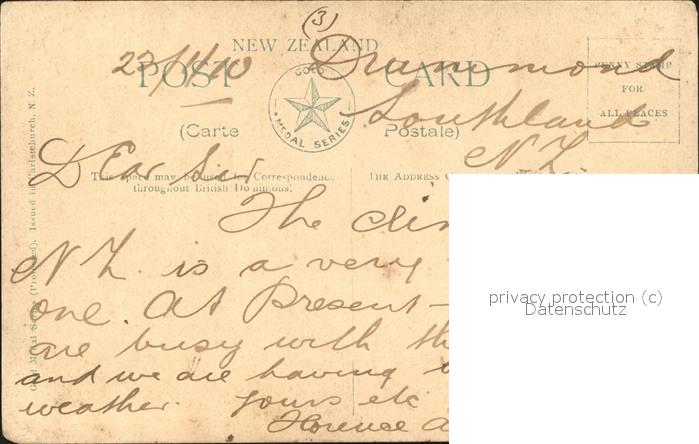 (3)
NEW ZEALAND
23/11/10 Drummond
POST CARD
GOLD MEDAL SERIES
PENNY STAMP
FOR
ALL PLACES
Southland
(Carte Postale)
N Z.
Dear Sir
This space may be used for Correspondence
throughout British Dominions.
THE ADDRESS
The
N Z. is a very
one. At Present
are busy with
and we are having
weather. Yours etc
Florence
Gold Medal Series (Protected). Issued in Christchurch, N. Z.
privacy protection (c)
Datenschutz